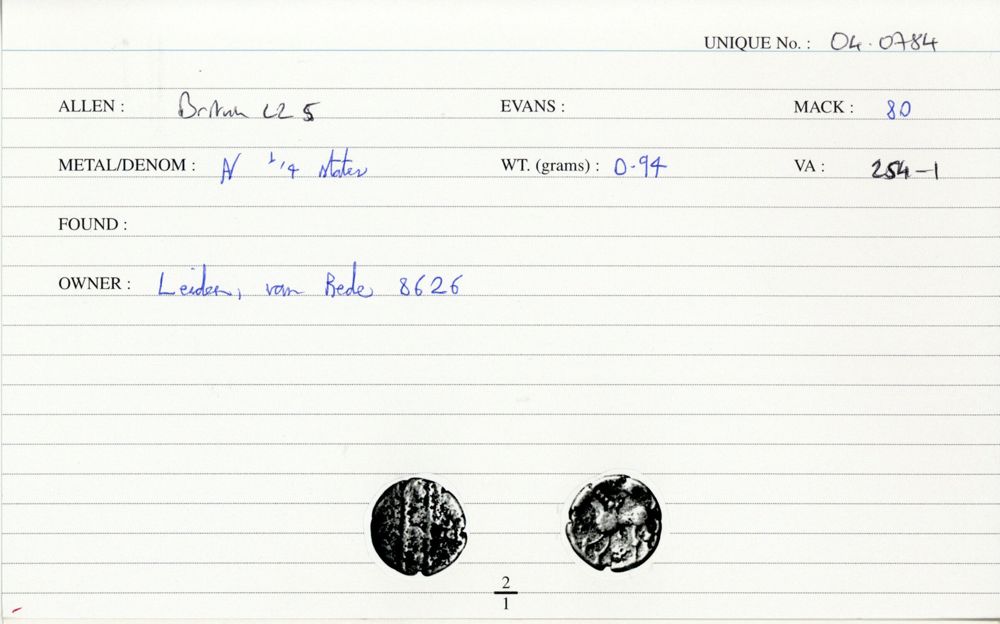 UNIQUE No. : 04.0784
ALLEN : British LZ 5 EVANS : MACK : 80
METAL/DENOM : AV 1/4 stater WT. (grams) : 0.94 VA : 254-1
FOUND :
OWNER : Leiden, van Rede 8626
2
1